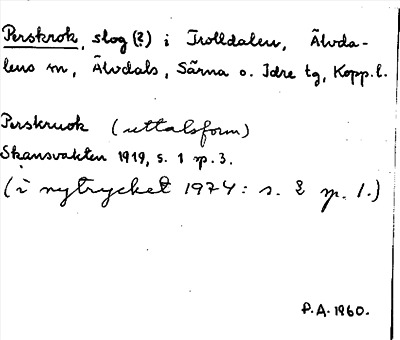 Perskrok, slog (?) i Trolldalen, Älvda-
lens sn, Älvdals, Särna o. Idre tg, Kopp. l.
Perskruok (uttalsform)
Skansvakten 1919, s. 1 sp. 3.
(i nytrycket 1974: s. 2 sp. 1.)
P.A. 1960.